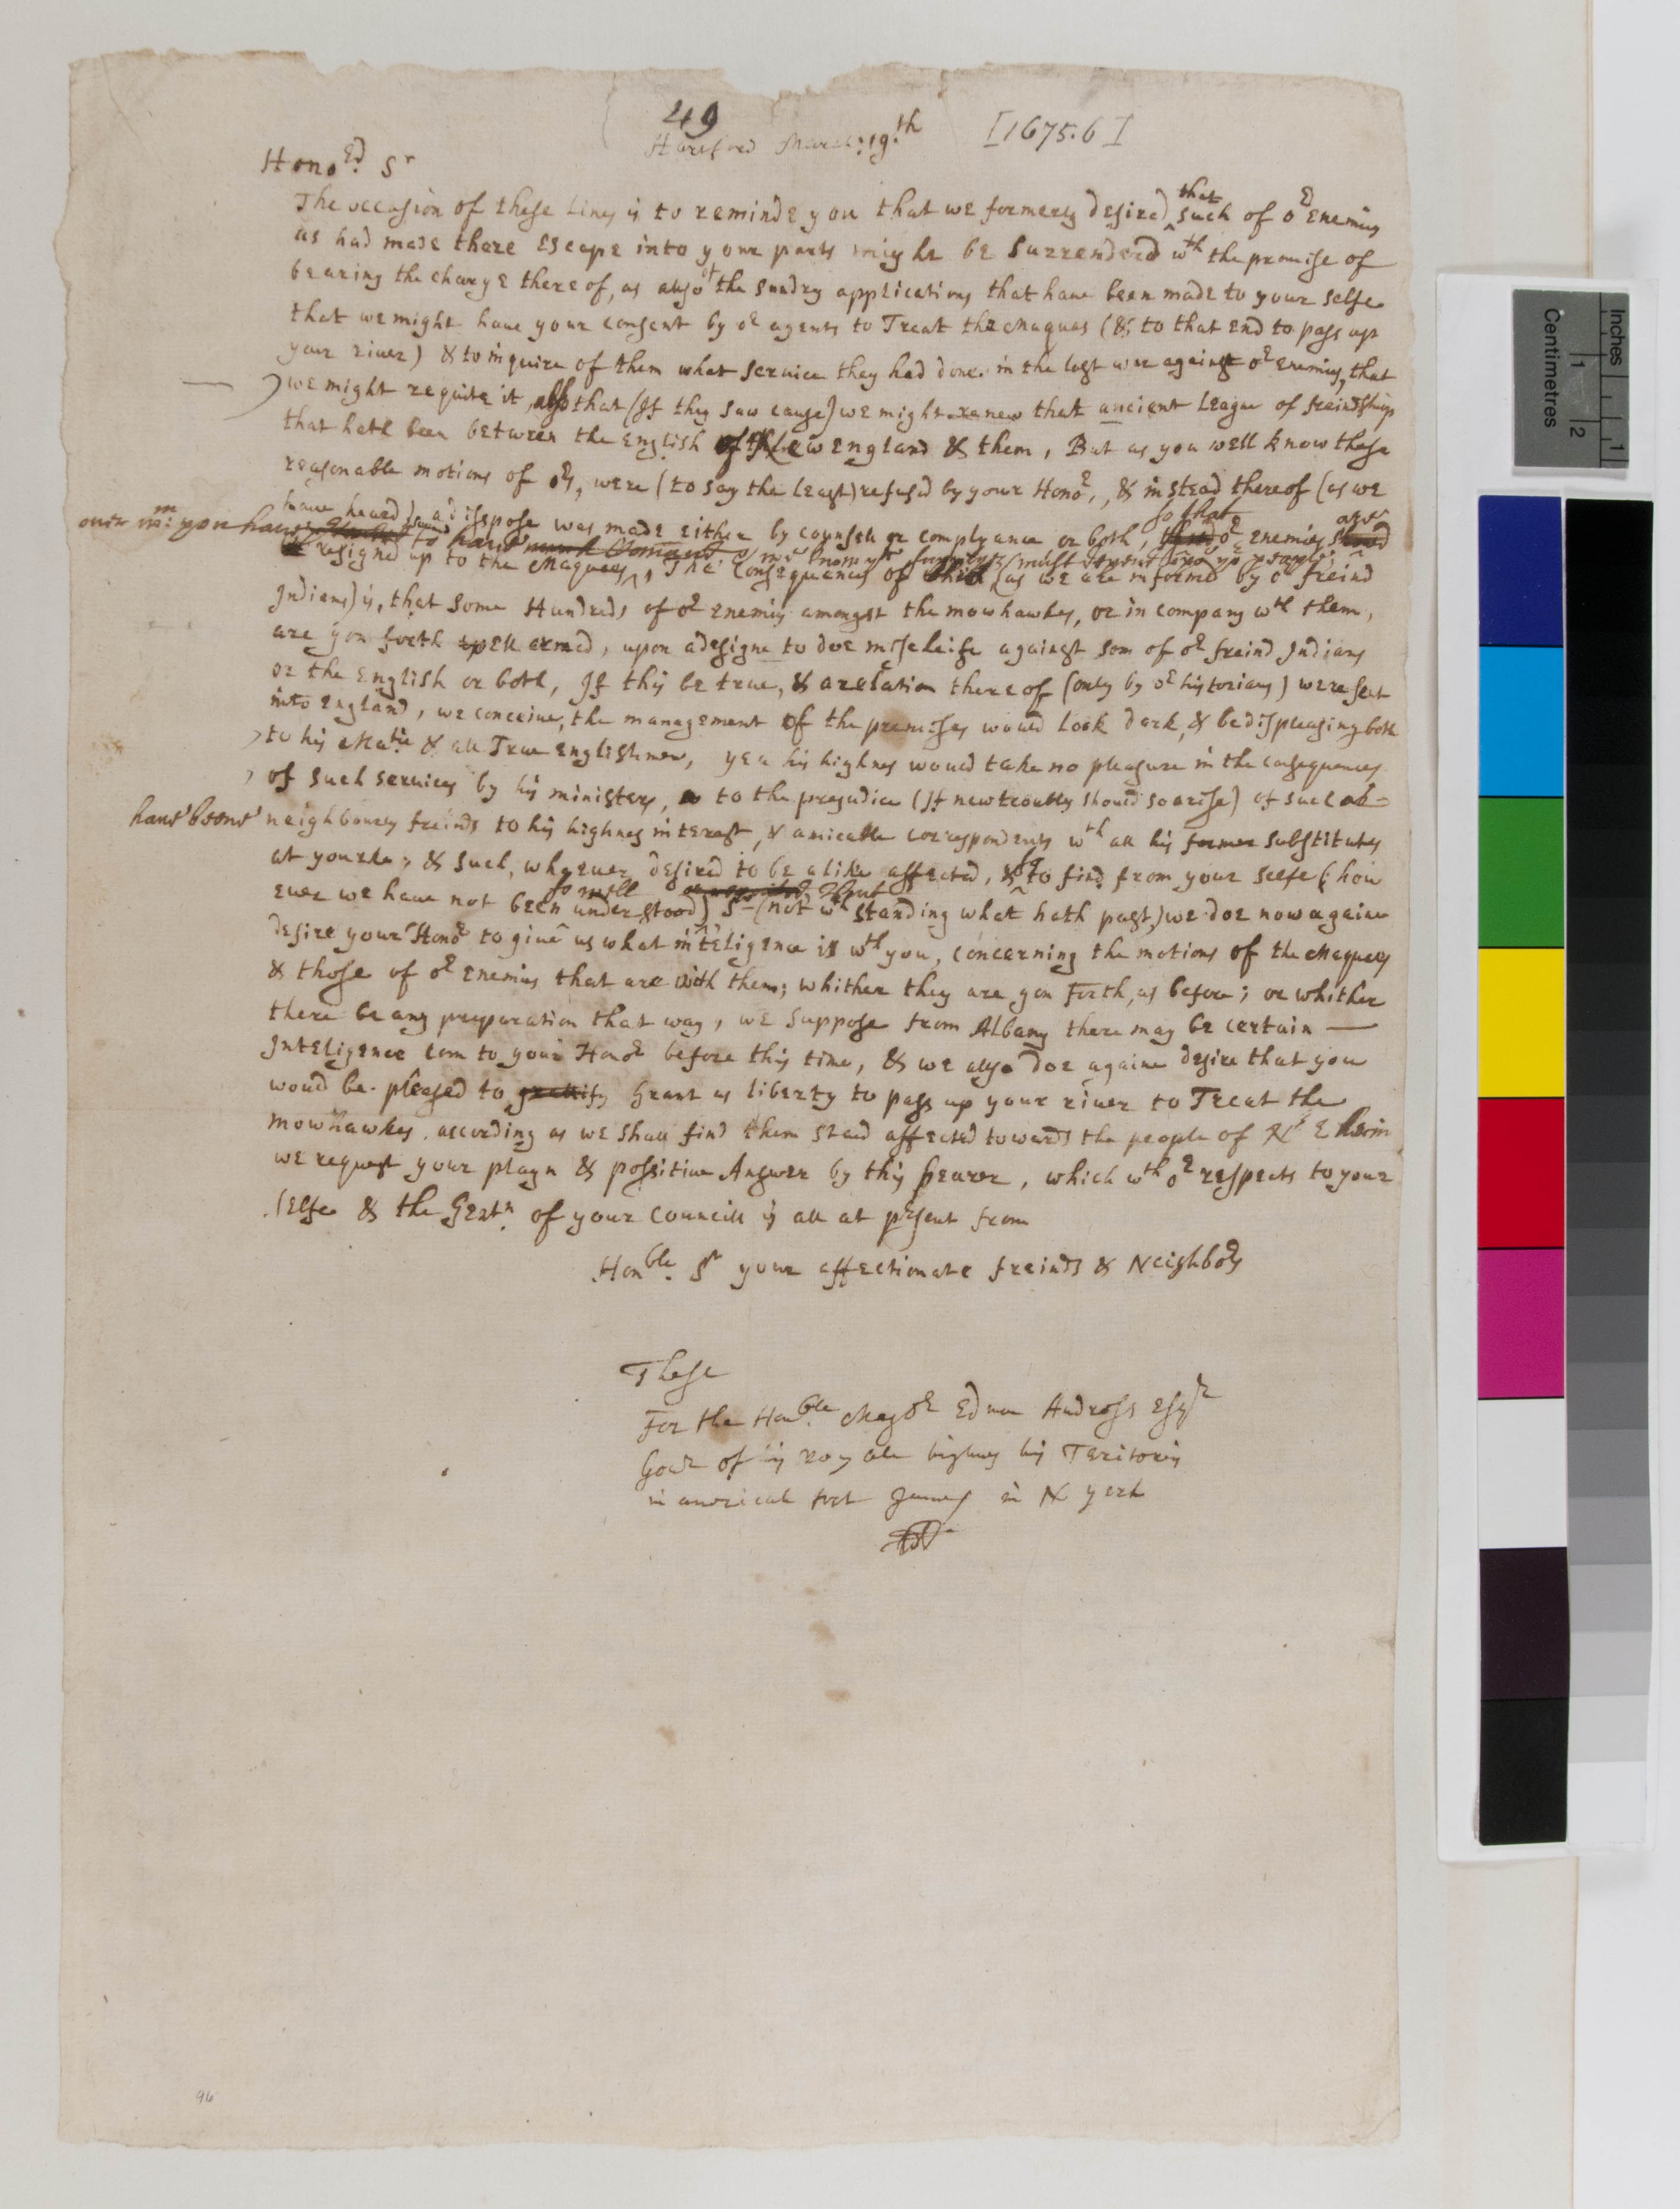 49
Hartford March: 19th [1675.6]
Honoed. Sr
The occasion of these Lines is to reminde you that we formerly desired that such of or Enemies
as had made there Escape into your parts might be Surrendered wth the promise of
bearing the charge thereof, as also of the sundry applications that have been made to your selfe
that we might have your consent by or agents to Treat the Maquas (& to that End to pass up
your river) & to inquire of them what service they had done in the last war against or Enemies, that
we might requite it, also that (If they saw cause) we might renew that ancient League of freindship
that hath been between the English of New England & them, But as you well know these
reasonable motions of ors, were (to say the least) refused by your Honor, & instead thereof (as we
have heard) a dispose was made either by counsell or complyance or both, so that or enemies are
over you have
resigned up to the Maquas, The Consequences of which (as we are informed by or freind
Indians) is, that some Hundreds of or enemies amongst the mowhawkes, or in company wth them,
are gon forth well armed, upon a designe to doe mischeife against som of or freind Indians
or the English or both, If this be true, & a relation thereof (only by or historians) were sent
into England, we conceive, the management of the premises would Look dark, & be displeasing both
to his Matie & all True Englishmen, yea his highnes would take no pleasure in the consequences
of such services by his ministers, to the prejudice (If new troubles should so arise) of such as
have beene neighbourly freinds to his highnes interest, & amicable correspondents wth all his former substitutes
at yourke; & such, whoever desired to be alike affected, & to find from your selfe (how
ever we have not been so well understood) Sr (notwthstanding what hath past) we doe now againe
desire your Honor to give us what inteligence is wth you, concerning the motions of the Maquas
& those of or enemies that are with them; whither they are gon forth, as before; or whither
there be any preparation that way, we suppose from Albany there may be certain
Inteligence com to your Honor before this time, & we also doe againe desire that you
would be pleased to gratify Grant us liberty to pass up your river to Treat the
mowhawkes according as we shall find them stand affected towards the people of N: E herin
we request your playn & possitive Answer by this bearer, which wth or respects to your
selfe & the Gentn. of your Councill is all at prsent from
Honble. Sr your affectionate freinds & Neighbors
These
For the Honble. Major Edmon Andross Esqr
Govr of his royall highnes his Teritories
in america at fort James in N york
96